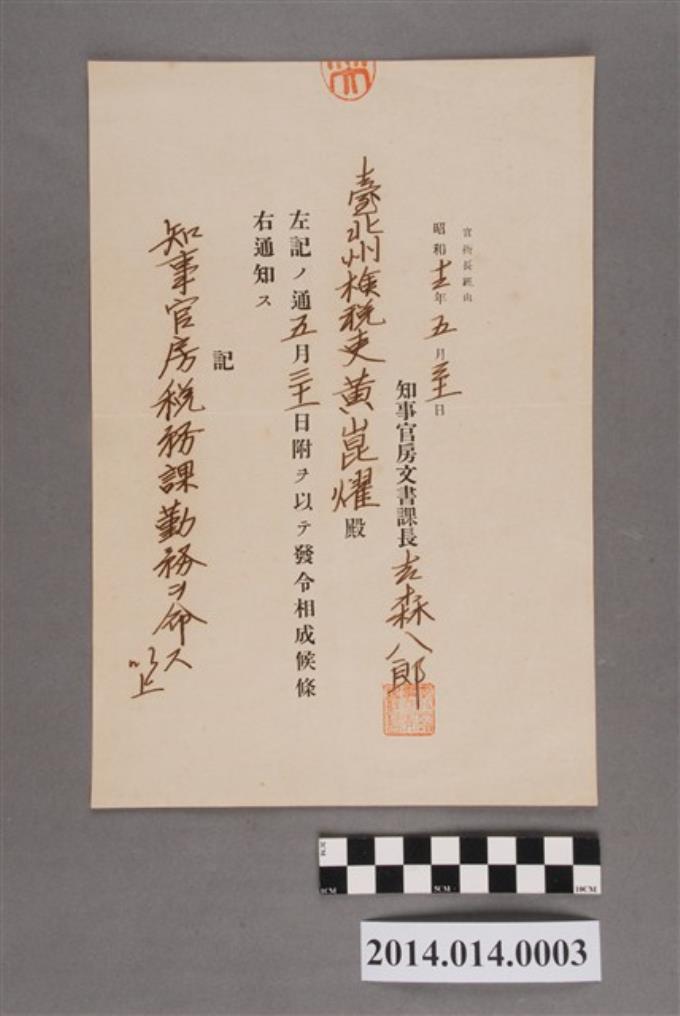 官衙長經由
昭和十一年五月三十一日
知事官房文書課長 吉森八郎
臺北州檢税吏 黄崑燿 殿
左記ノ通五月三十一日附ヲ以テ發令相成候條
右通知ス
記
知事官房税務課勤務ヲ命ス
以上
1CM
5CM
10CM
2014.014.0003